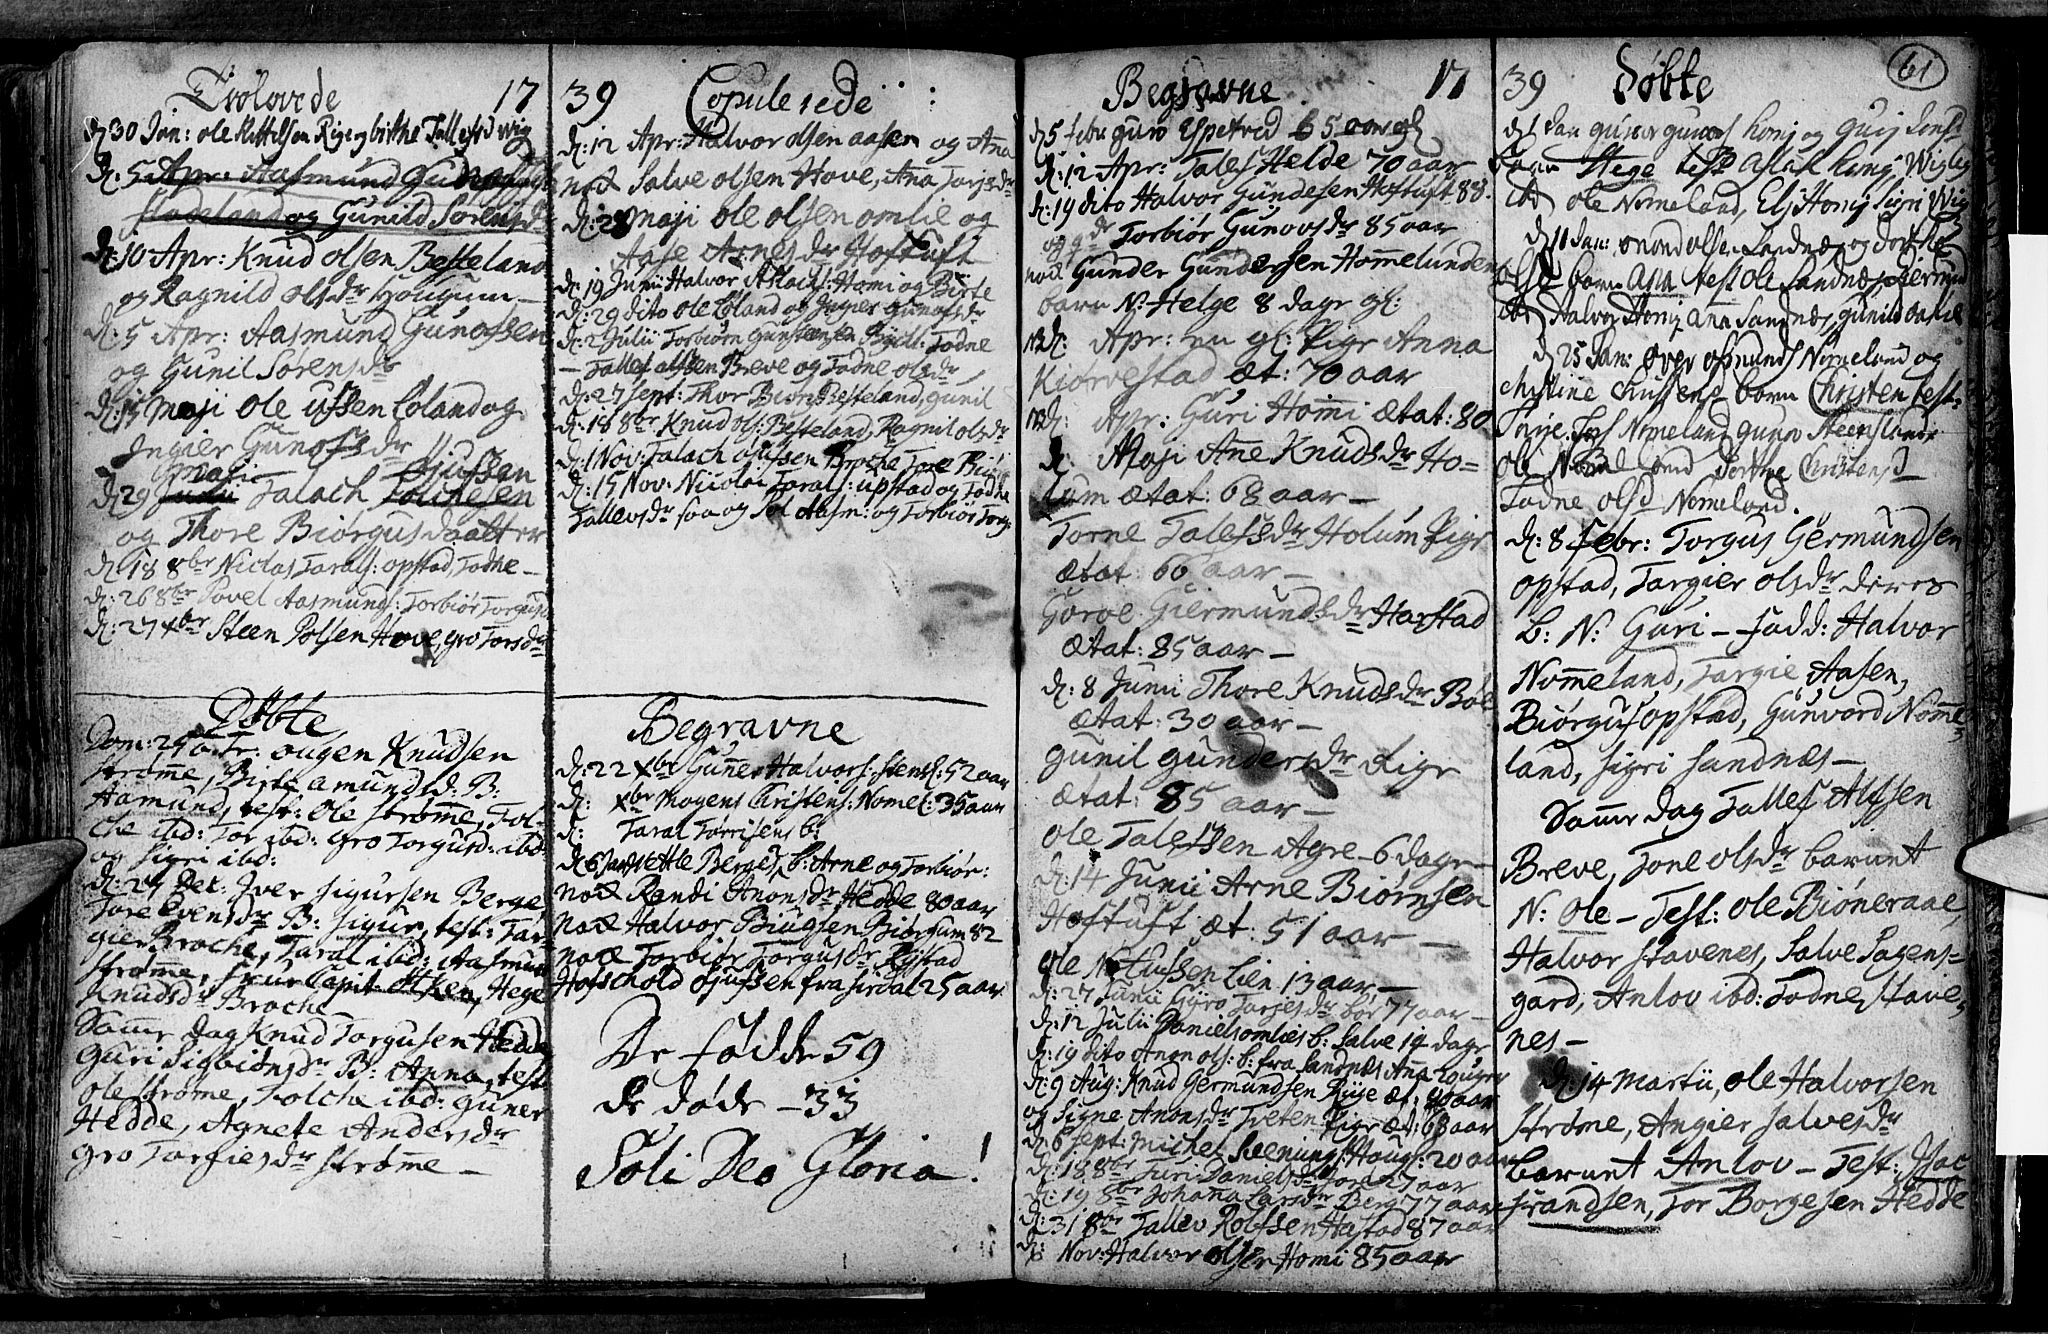 Trolovede 17
d: 30 Jan: ole Kittelsøn Rige og birthe Tallefsd Wig
d: 5 Apr: Aasmund Gunofsen
og Gunild Sørensdr
d: 10 Apr: Knud Olsen Besteland
og Ragnild olsdr Hougum
d: 5 Apr: Aasmund Gunofsen
og Gunil Sørensdr
d: 15 Maji Ole Ufsen Loland og
Ingier Gunofsdr
Maji Ojufsen
d: 29 Junii Talach Folchesen
og Thore Biørgusdaatter
d: 18 8br Niclas Tarals: opstad, Todne
d: 26 8br Povel Aasmunds: Torbiør Torgusd
d: 27 xbr Steen Polsen Hove, gro Torsdr
Døbte
Dom: 24 a Tr: ougen Knudsen
Strømme, Birte amundsd: B:
Aamund, test: Ole Strømme, Fol-
che ibd: Tor ibd: Gro Torgusd: ibd:
og Sigri ibd:
d: 27 Dec: Iver Sigursen Berge,
Tore Evensdr B: Sigur, test: Tar-
gier Broche, Taral ibd: Aasmun
Strømme, Capit Hege
Knudsdr Broche
Samme dag Knud Torgusen Hedde
Guri Sigbiønsdr B: Anna, test
Ole Strømme, Folche ibd: Guner
Hedde, Agnete Andersdr
gro Targiesdr Strømme
39 Copulerede
d: 12 Apr: Halvor olsen aasen og Ana
noch Salve olsen Hove, Ana Torjsdr
d: 28 Maji ole olsen omlie og
Aase Arnesdr Hoftuft
d: 19 Junii Halvor Aslachs: Homi og Birte
d: 29 dito ole Loland og Ingier Gunofsdr
d: 2 Julii Torbiørn Gunstensen Todne
Tallef alfsen Breve og Todne olsdr
d: 27 Sept: Thor Biøn Besteland, gunil
d: 18 8br Knud ols: Besteland, Ragnil olsdr
d: 1 Nov: Talach ojufsen Broche Tore Biørg
d: 15 Nov: Nicolai Tarals: upstad og Todne
Tallevsdr saa og Pol Aasm: og Torbiør Torgs
Begravne
d: 22 xbr Guner Halvors: 52 aar
d: xbr Mogens Christens: Nomel: 35 aar
d: Taral Tørrisens b:
d: 6 Atle Berges b: Arne og Torbiør:
noch Randi Anonsdr Hedde 80 aar
noch Halvor Biugsen Biørgum 82
noch Torbiør Torgusdr Rystad
Hofschold Ojufsen fra Sirdal 25 aar
De fødde 59
de døde - 33
Soli Deo Gloria!
Begravne 17
d: 5 febr guro Espetved 65 aar gl
d: 12 Apr: Tales Helde 70 aar
d: 19 dito Halvor Gundesen Hoftuft 88.
og qdr Torbiør Gunovsdr 85 aar
noch Gunder Gundersen Hommelunden
barn N: Helge 8 dage gl:
d: Apr: en gl: Pige Anna
Kiørvestad æt: 70 aar
d: Apr: Guri Hommi ætat: 80
d: Maji Ane Knudsdr Ho=
lum ætat: 68 aar
Torne Talefsdr Holum Pige
ætat: 60 aar
Goroe Giermundsdr Harstad
ætat: 85 aar
d: 8 Junii Thore Knudsdr Boe
ætat: 30 aar
gunil gundersdr Rige
ætat: 85 aar
ole Talefsen Agre 6 dage
d: 14 Junii Arne Biørnsen
Hoftuft æt: 51 aar
Ole Lien 13 aar
d: 27 Junii Gyro Tarjesdr bør 77 aar
d: 12 Julii Daniels omlies b: Salve 14 dage
d: 19 dito Anon ols: b: fra Sandnæs Anna
d: 9 Aug: Knud Germundsen Rige æt: 40 aar
og Signe Anonsdr Treten Pige æt: 68 aar
d: 6 Sept: Michel Henings: Houg: 20 aar
d: 18 8br Siri Danielsdr 27 aar
d: 19 8br Johana Larsdr Berg 77 aar
d: 31 8br Tallev Rolfsen Hastad 87 aar
d: 8 Nov: Halvor olsen Homi 85 aar
39 Døbte 61
d: 1 Jan gunnor Honj og
barn Hege test Aslak Honj, Wigby
ibd ole Nomeland, Els Honj Sigri Wig
d: 11 Jan: onond olsen Sandnæs og dorthe
olsd barn Asa test ole Sandnæs, giermund
ibd Halvor Honj anna Sandnæs, gunild
d: 25 Jan: over osmunds Nomeland og
christine barn Christen test:
Nomeland, gunv Steensland
ole Nomeland Dorthe Christensd
Todne olsd Nomeland.
d: 8 Febr: Torgus Germundsen
opstad, Targier olsdr deres
b: N: Guri - Fadd: Halvor
Nommeland, Targie Aasen,
Biørgus opstad, Gunvord Nomme=
land, Sigri Sandnæs
Samme dag Tallef Alfsen
Breve, Tone olsdr barnet
N: Ole - Test: Ole Biøneraae,
Halvor Stavenes, Salve Sagens=
gard, Anlov ibd: Todne Stave=
nes
d: 14 Martii, Ole Halvorsen
Strømme, Angier Salvesdr
barnet Anlov - Test: Isac
Frandsen, Tor Borgesen Hedde